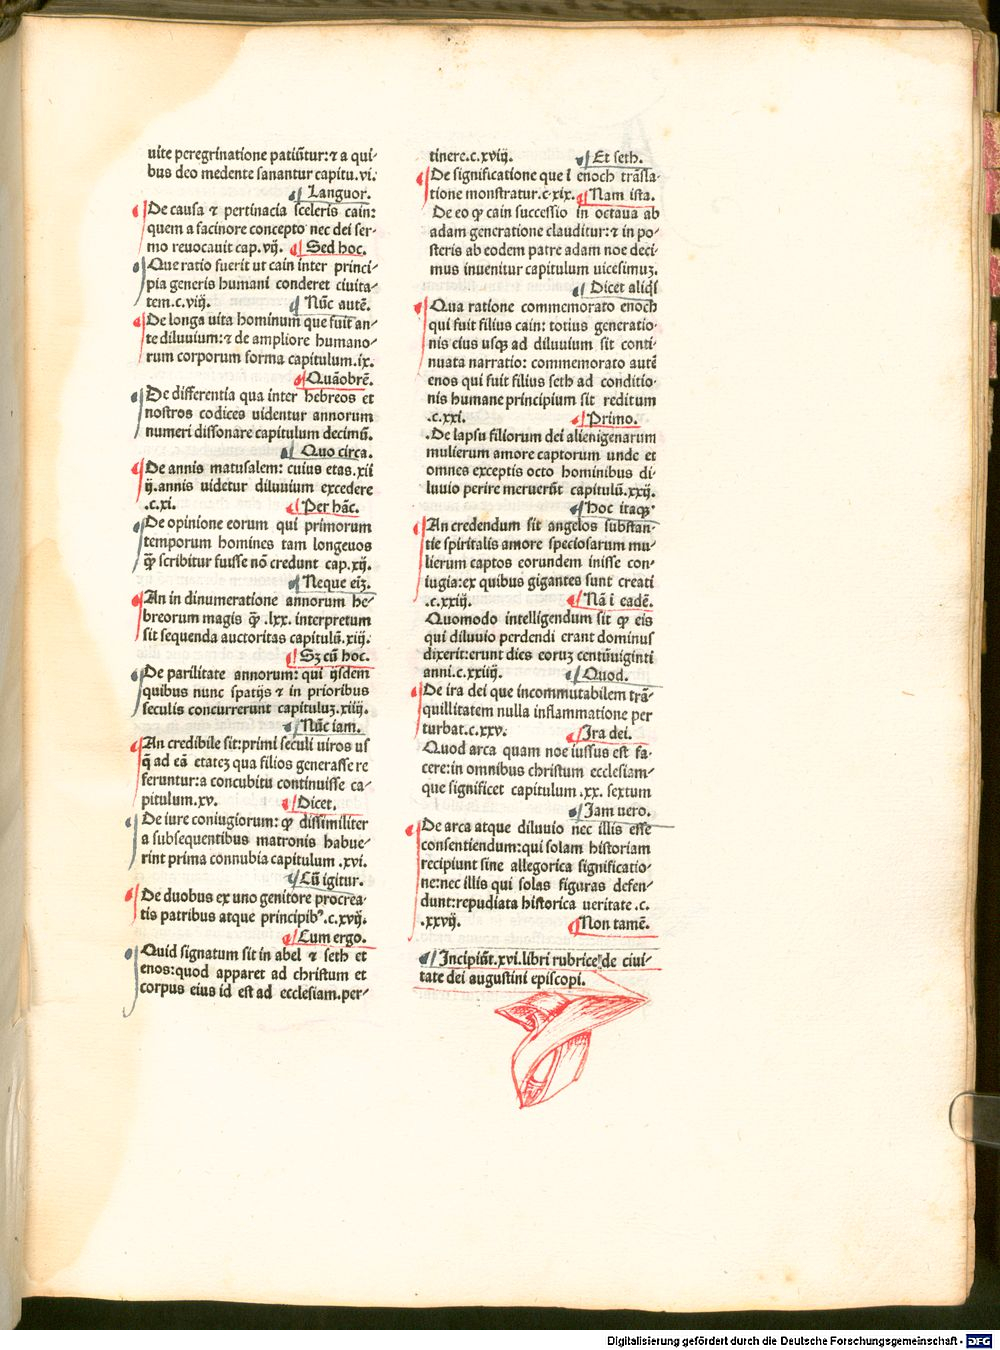 uite peregrinatione patiūtur: ⁊ a qui-
bus deo medente sanantur capitu.vi.
Languor.
De causa ⁊ pertinacia sceleris cain:
quem a facinore concepto nec dei ser-
mo reuocauit cap.vij. Sed hoc.
Que ratio fuerit ut cain inter princi-
pia generis humani conderet ciuita-
tem.c.viij. Nūc autē.
De longa uita hominum que fuit an-
te diluuium: ⁊ de ampliore humano-
rum corporum forma capitulum.ix.
Quāobrē.
De differentia qua inter hebreos et
nostros codices uidentur annorum
numeri dissonare capitulum decimū.
Quo circa.
De annis matusalem: cuius etas.xii
ij.annis uidetur diluuium excedere
.c.xi. Per hāc.
De opinione eorum qui primorum
temporum homines tam longeuos
ꝙ scribitur fuisse nō credunt cap.xij.
Neque eiꝫ.
An in dinumeratione annorum he-
breorum magis ꝙ .lxx. interpretum
sit sequenda auctoritas capitulū.xiij.
Sꝫ cū hoc.
De parilitate annorum: qui ijsdem
quibus nunc spatijs ⁊ in prioribus
seculis concurrerunt capituluꝫ.xiiij.
Nūc iam.
An credibile sit: primi seculi uiros us
q̄ ad eā etateꝫ qua filios generasse re
feruntur: a concubitu continuisse ca-
pitulum.xv. Dicet.
De iure coniugiorum: ꝙ dissimiliter
a subsequentibus matronis habue-
rint prima connubia capitulum .xvi.
Cū igitur.
De duobus ex uno genitore procrea-
tis patribus atque principibꝰ.c.xvij.
Cum ergo.
Quid signatum sit in abel ⁊ seth et
enos: quod apparet ad christum et
corpus eius id est ad ecclesiam.per-
tinere.c.xviij. Et seth.
De significatione que ī enoch trāsla-
tione monstratur.c.xix. Nam ista.
De eo ꝙ cain successio in octaua ab
adam generatione clauditur: ⁊ in po-
steris ab eodem patre adam noe deci-
mus inuenitur capitulum uicesimuꝫ.
Dicet aliqs
Qua ratione commemorato enoch
qui fuit filius cain: totius generatio-
nis eius usqꝫ ad diluuium sit conti-
nuata narratio: commemorato autē
enos qui fuit filius seth ad conditio-
nis humane principium sit reditum
.c.xxi. Primo.
.De lapsu filiorum dei alienigenarum
mulierum amore captorum unde et
omnes exceptis octo hominibus di-
luuio perire meruerūt capitulū.xxij.
Hoc itaqꝫ
An credendum sit angelos substan-
tie spiritalis amore speciosarum mu-
lierum captos eorundem inisse con-
iugia: ex quibus gigantes sunt creati
.c.xxiij. Nā ī eadē.
Quomodo intelligendum sit ꝙ eis
qui diluuio perdendi erant dominus
dixerit: erunt dies eoruꝫ centūuiginti
anni.c.xxiiij. Quod.
De ira dei que incommutabilem trā-
quillitatem nulla inflammatione per
turbat.c.xxv. Ira dei.
Quod arca quam noe iussus est fa-
cere: in omnibus christum ecclesiam-
que significet capitulum .xx. sextum
Jam uero.
De arca atque diluuio nec illis esse
consentiendum: qui solam historiam
recipiunt sine allegorica significatio-
ne: nec illis qui solas figuras defen-
dunt: repudiata historica ueritate .c.
.xxvij. Non tamē.
Incipiūt.xvi.libri rubrice de ciui-
tate dei augustini episcopi.
Digitalisierung gefördert durch die Deutsche Forschungsgemeinschaft - DFG